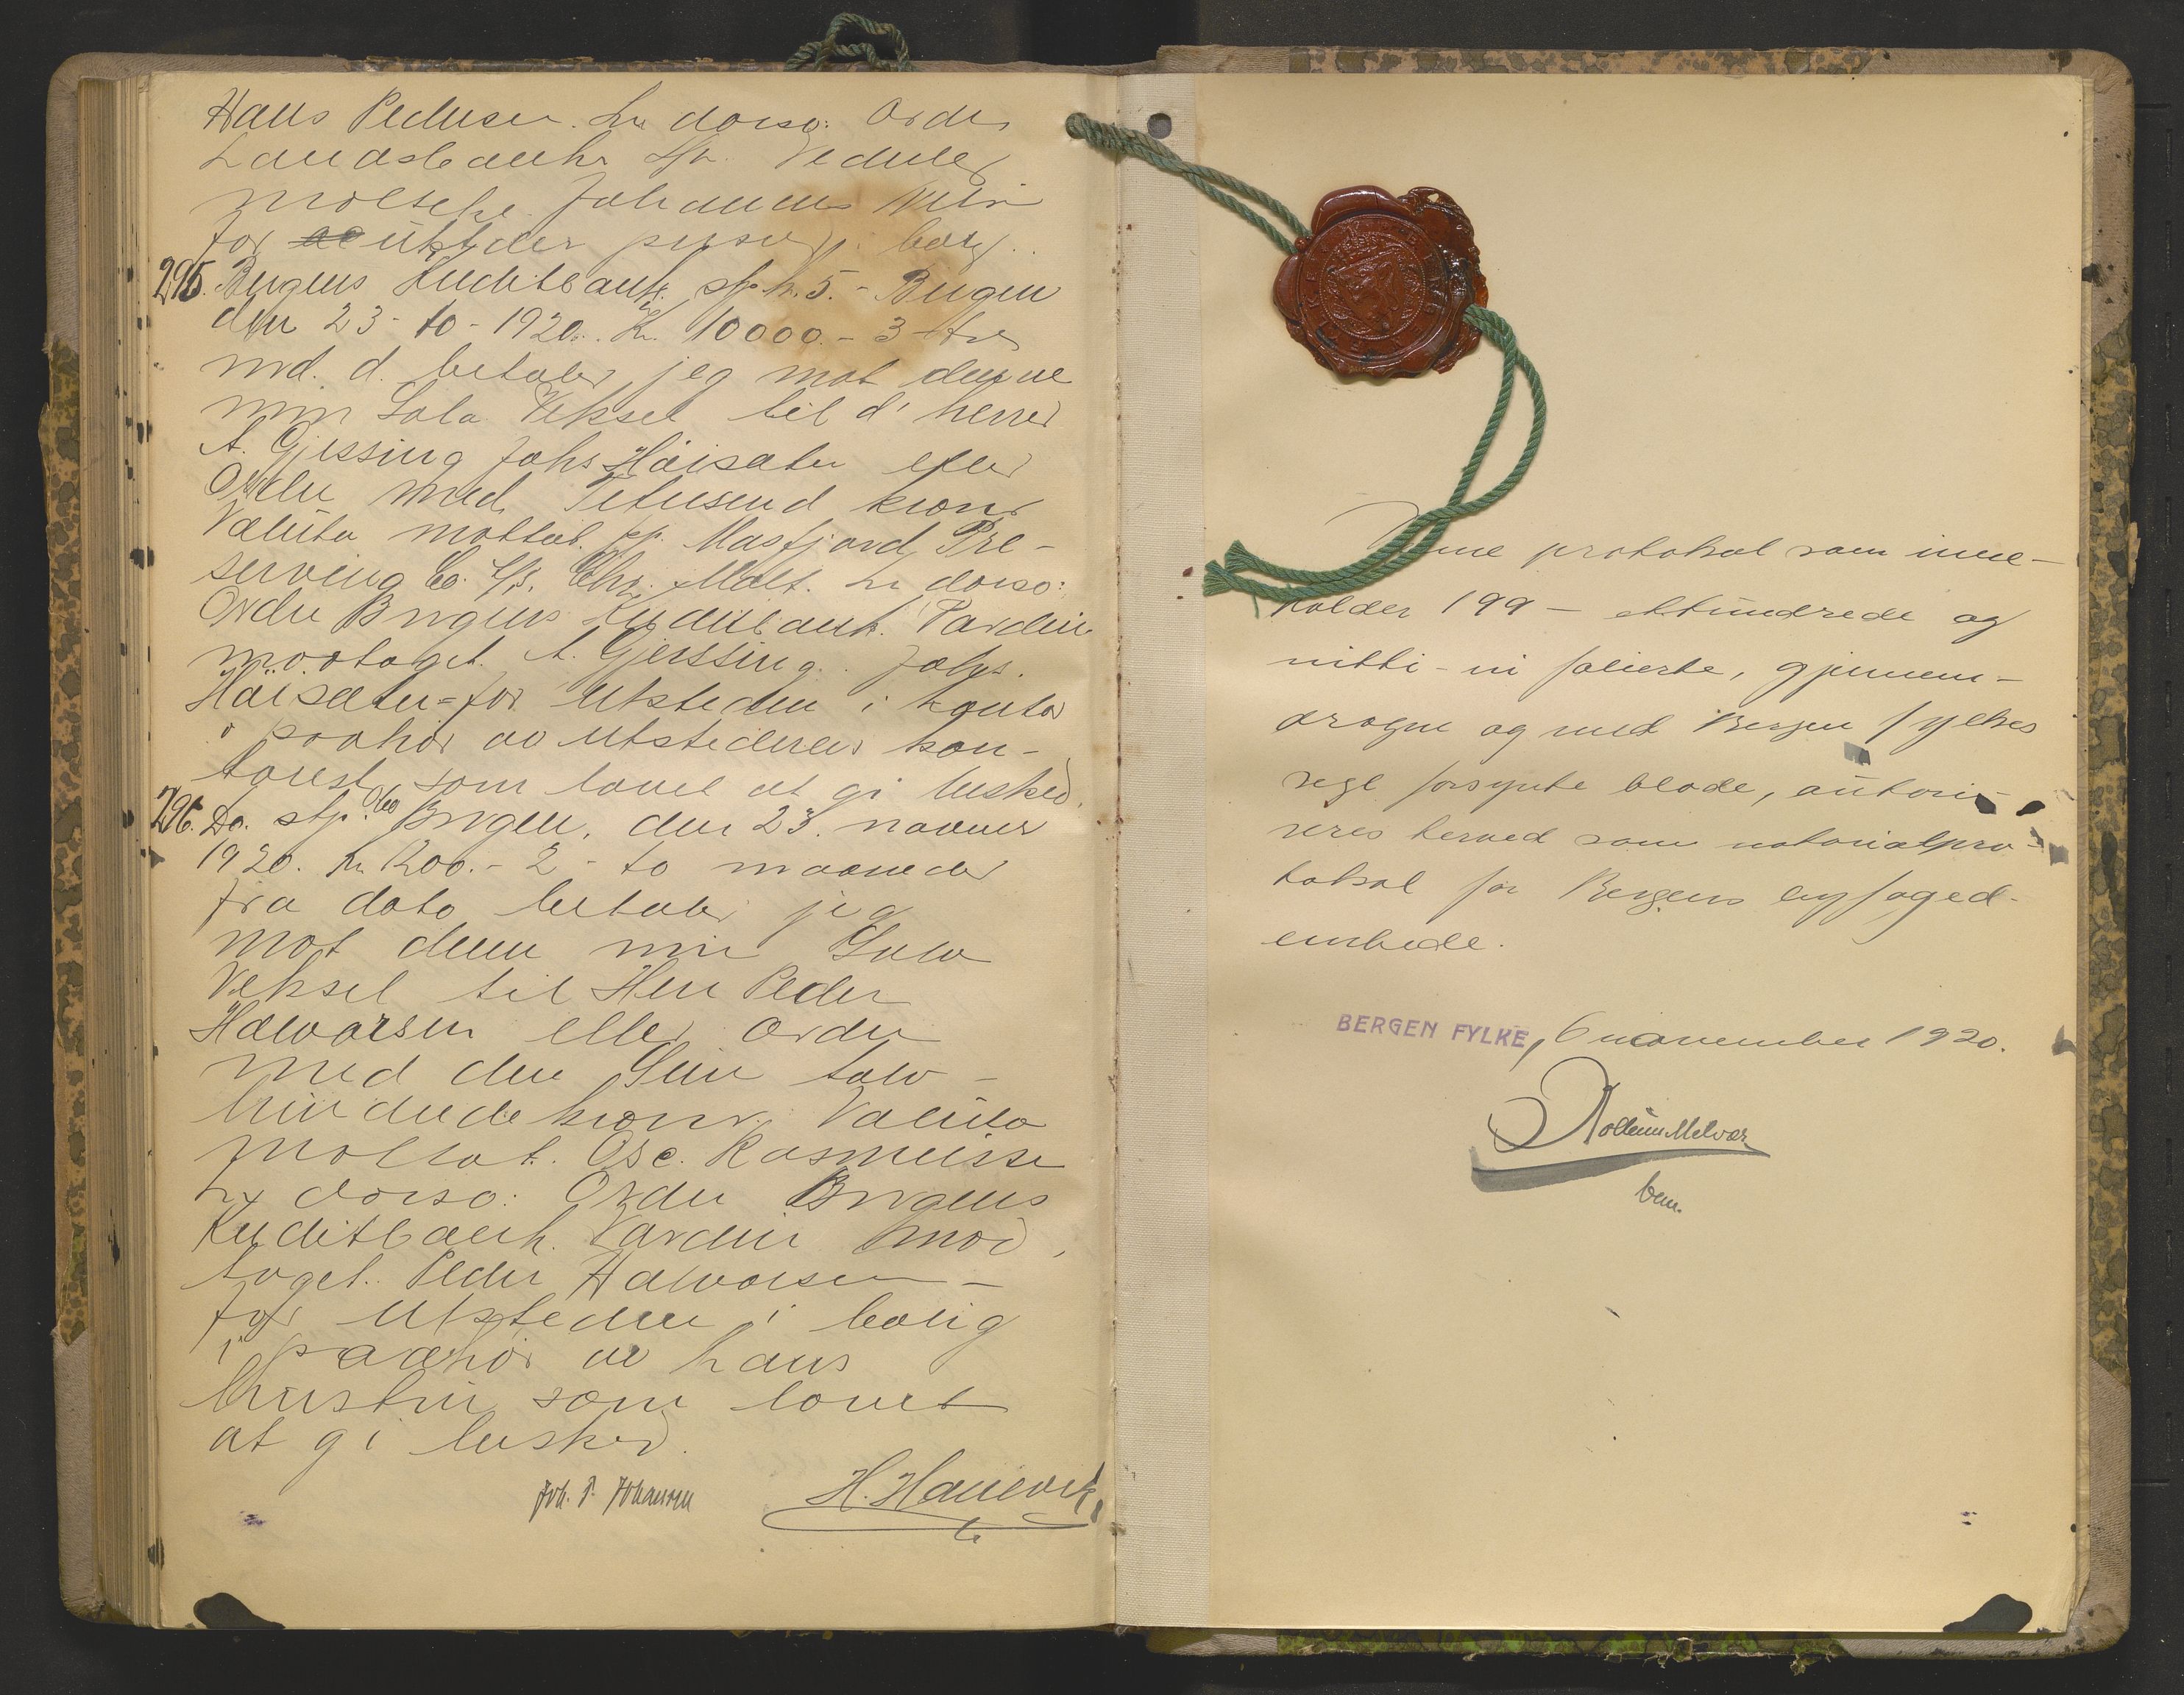 Hans Pedersen. In dorso: Ordre
Landsbanken
Johannes
for utsteder personl. i bolig.
295. Bergens Kreditbank. stp. kr. 5.- Bergen
den 23-10-1920. Kr. 10000.- 3 tre
md. d. betaler jeg mot denne
min Sola Veksel til d' herrer
A. Gjessing Johs Hӧisæter eller
Ordre med Titusend kroner
Valuta mottat. pp. Masfjord Pre-
serving Co. A/S. Chr. Molt. In dorso:
Ordre Bergens Kreditbank. Værdien
mootaget. A. Gjessing. Johs.
Höisæter = for utstederen i kontor
i paahör av utstederens kon-
torist som lovet at gi besked.
296. Do. stp. Bergen, den 23. november
1920. Kr 1200.- 2 - to maaneder
fra dato betaler jeg
mot denne min Sola
Veksel til Herr Peder
Halvorsen eller ordre
med den Sum tolv-
hundrede kroner. Valuta
mottat. Osc. Rasmussen
In dorso: Ordre Bergens
Kreditbank. Værdien mod-
taget. Peder Halvorsen -
for utstederen i bolig
i paahör av hans
hustru som lovet
at gi besked.
Joh. P. Johansen H. Haukvik
Denne protokol som inne-
holder 199 - etthundrede og
nitti-ni folierte, gjennem-
dragne og med Bergen fylkes
segl forsynte blade, autori-
seres herved som notarialpro-
tokol for Bergens byfoged-
embede.
BERGEN FYLKE, 6 november 1920.
bem.